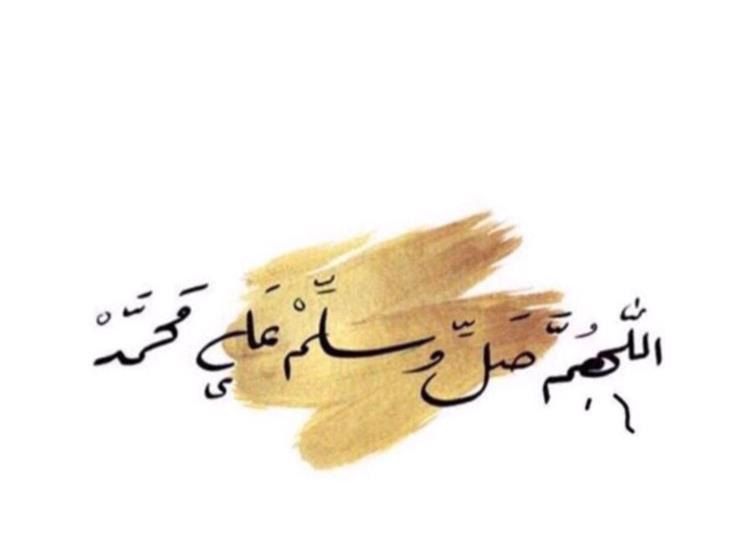 اللَّهُمَّ صَلِّ وسَلِّمْ عَلي مَحَمَّدْ